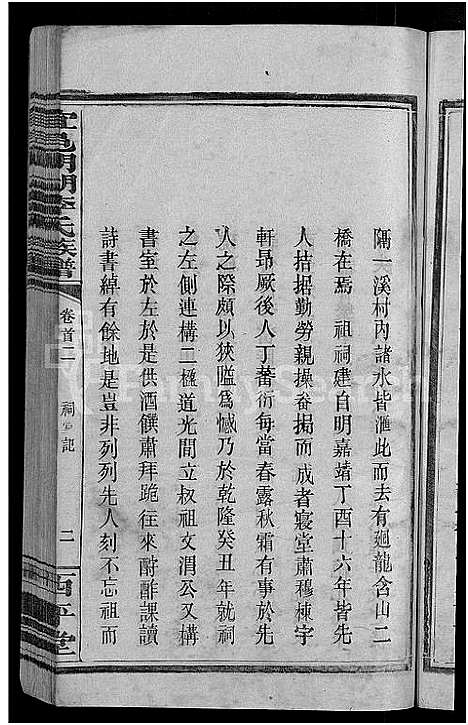 隔一溪村內諸水皆滙此而去有廻龍含山二
橋在焉　祖祠建自明嘉靖丁酉十六年皆先
人拮据勤勞親操畚挶而成者寢堂肅穆棟宇
軒昂厥後人丁蕃衍每當春露秋霜有事於先
人之際頗以狹隘爲憾乃於乾隆癸丑年就祠
之左側連構二楹道光間立叔祖文渭公又構
書室於左於是供酒饌肅拜跪往來酧酢課讀
詩書綽有餘地是豈非列列先人刻不忘祖而
氏族譜
卷首二
祠記
二
西平堂
FamilySearch